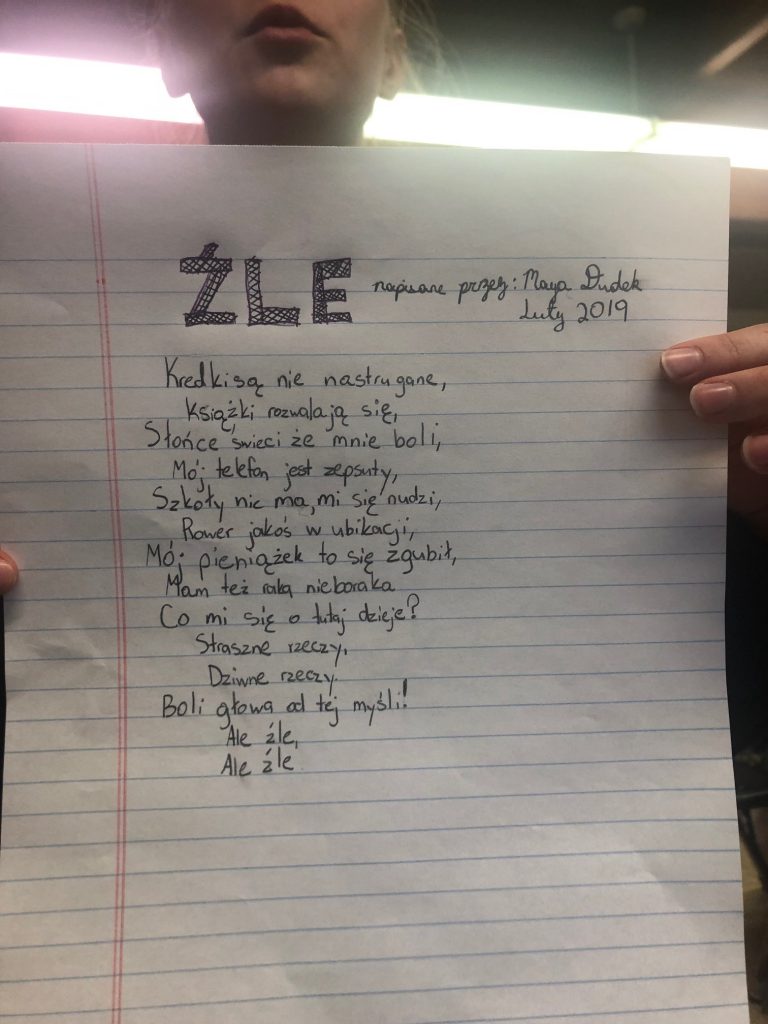 ŹLE
napisane przez: Maya Dudek
Luty 2019
Kredki są nie nastrugane,
Książki rozwalają się,
Słońce świeci że mnie boli,
Mój telefon jest zepsuty,
Szkoły nic ma, mi się nudzi,
Rower jakoś w ubikacji,
Mój pieniążek to się zgubił,
Mam też raka nieboraka
Co mi się o tutaj dzieje?
Straszne rzeczy,
Dziwne rzeczy.
Boli głowa od tej myśli!
Ale źle,
Ale źle